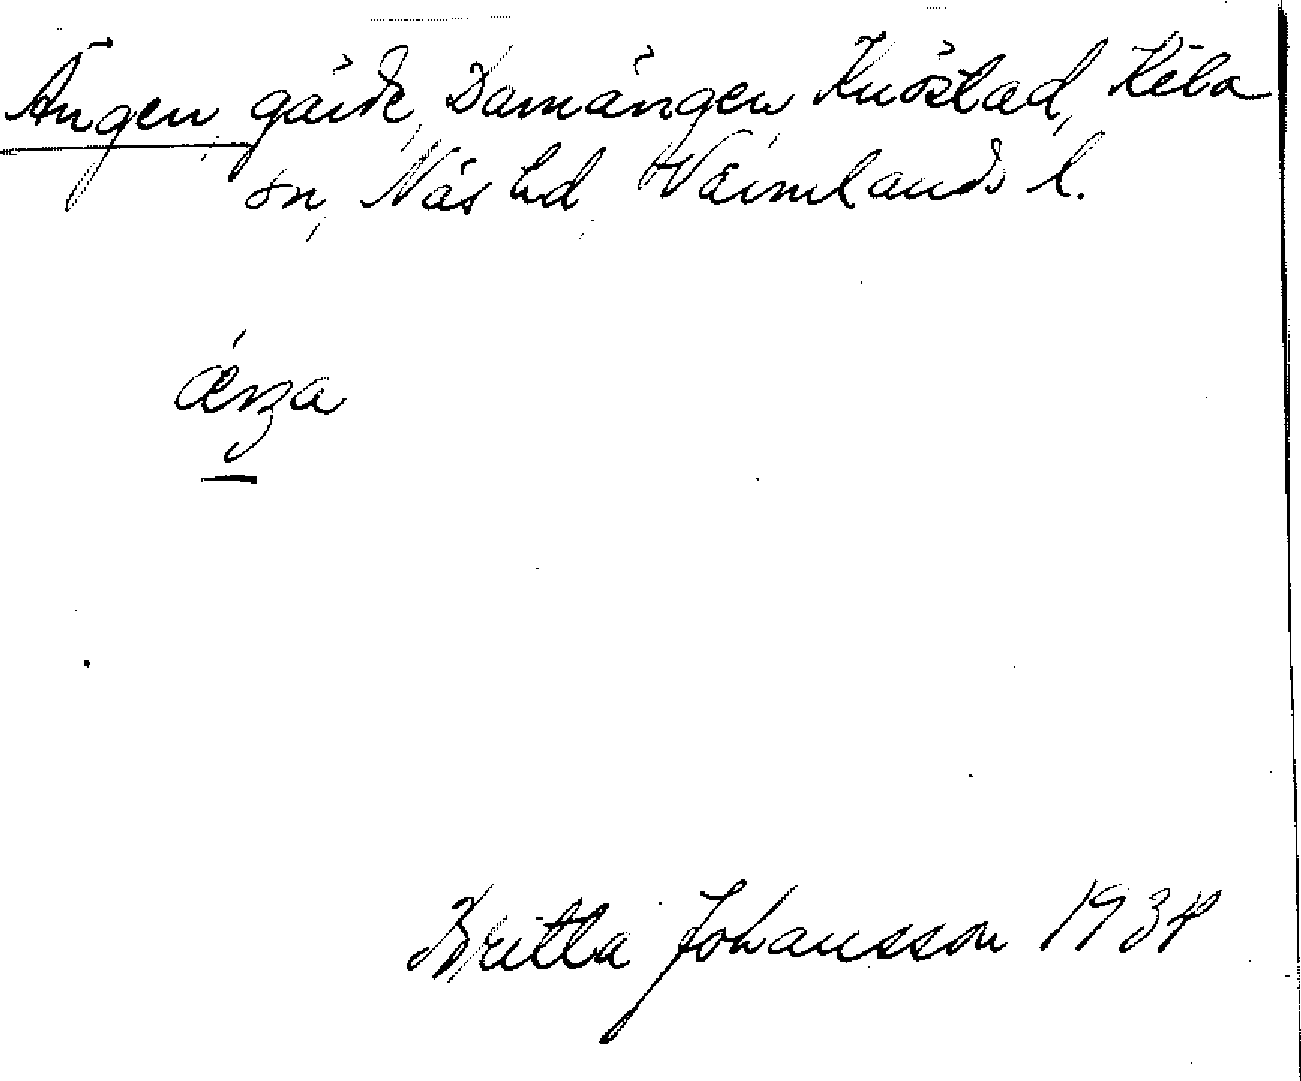 Ängen, gärde, Damängen Knöstad, Kila
sn, Näs hd, Värmlands l.
æŋa
Britta Johansson 1934